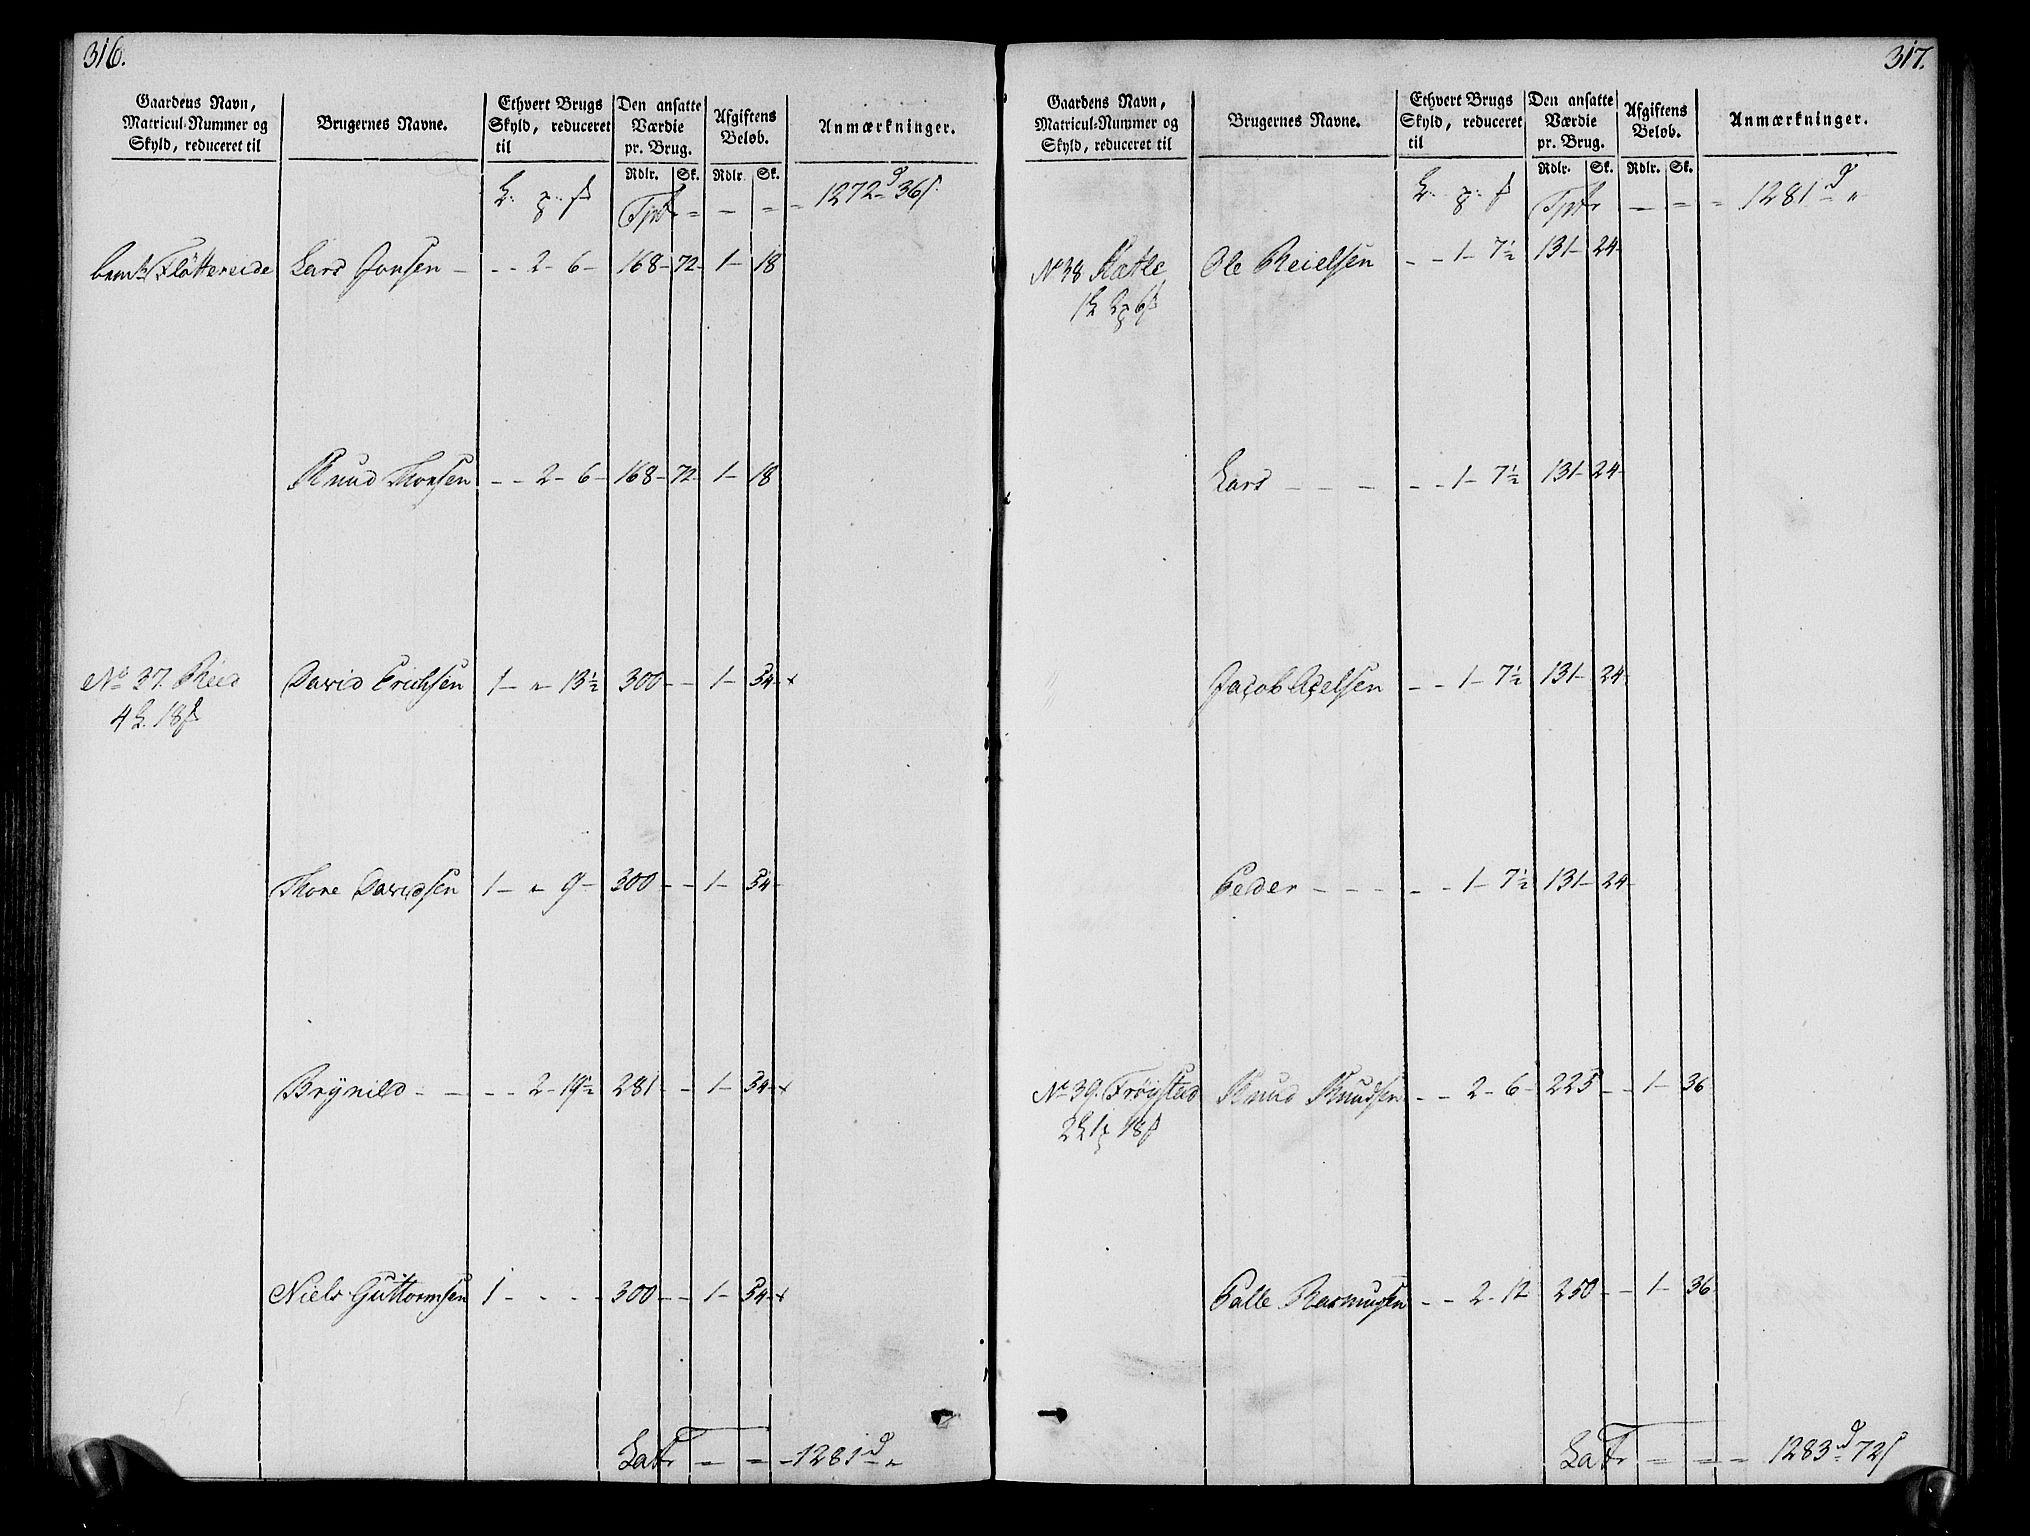 316.
Gaardens Navn, Matricul-Nummer og Skyld, reduceret til | Brugernes Navne. | Ethvert Brugs Skyld, reduceret til | Den ansatte Værdie pr. Brug. | Afgiftens Beløb. | Anmærkninger.
Rdlr. Sk. Rdlr. Sk.
Tpt – – – 1272 d 36 s
Fløttereide Lars Jonsen – – – 2 – 6 – 168 – 72 – 1 – 18
Knud Thorsen – – 2 – 6 – 168 – 72 – 1 – 18
No 37. Reed David Erichsen 1 – " – 13½ 300 – – 1 – 54 – x
4 L. 18
Thore Davidsen 1 – " – 9 – 300 – – 1 – 54 –
Brÿnild – – – – 2 – 19½ 281 – – 1 – 54 – x
Niels Guttormsen 1 – – – – 300 – – 1 – 54 – x
Lat – – – 1281 d "
317.
Gaardens Navn, Matricul-Nummer og Skyld, reduceret til | Brugernes Navne. | Ethvert Brugs Skyld, reduceret til | Den ansatte Værdie pr. Brug. | Afgiftens Beløb. | Anmærkninger.
Rdlr. Sk. Rdlr. Sk.
Tpt – – – 1281 d "
No 38 Kætle Ole Reielsen – – 1 – 7½ 131 – 24 –
1 L 2 6
Lars – – – – – 1 – 7½ 131 – 24 –
Jacob Axelsen – – 1 – 7½ 131 – 24 –
Peder – – – – – 1 – 7½ 131 – 24 –
No 39. Frøystad Knud Knudsen – – 2 – 6 – 225 – – 1 – 36
2 L 1 18
Palle Rasmusen – – 2 – 12 250 – – 1 – 36
Lat – – – 1283 d 72 s